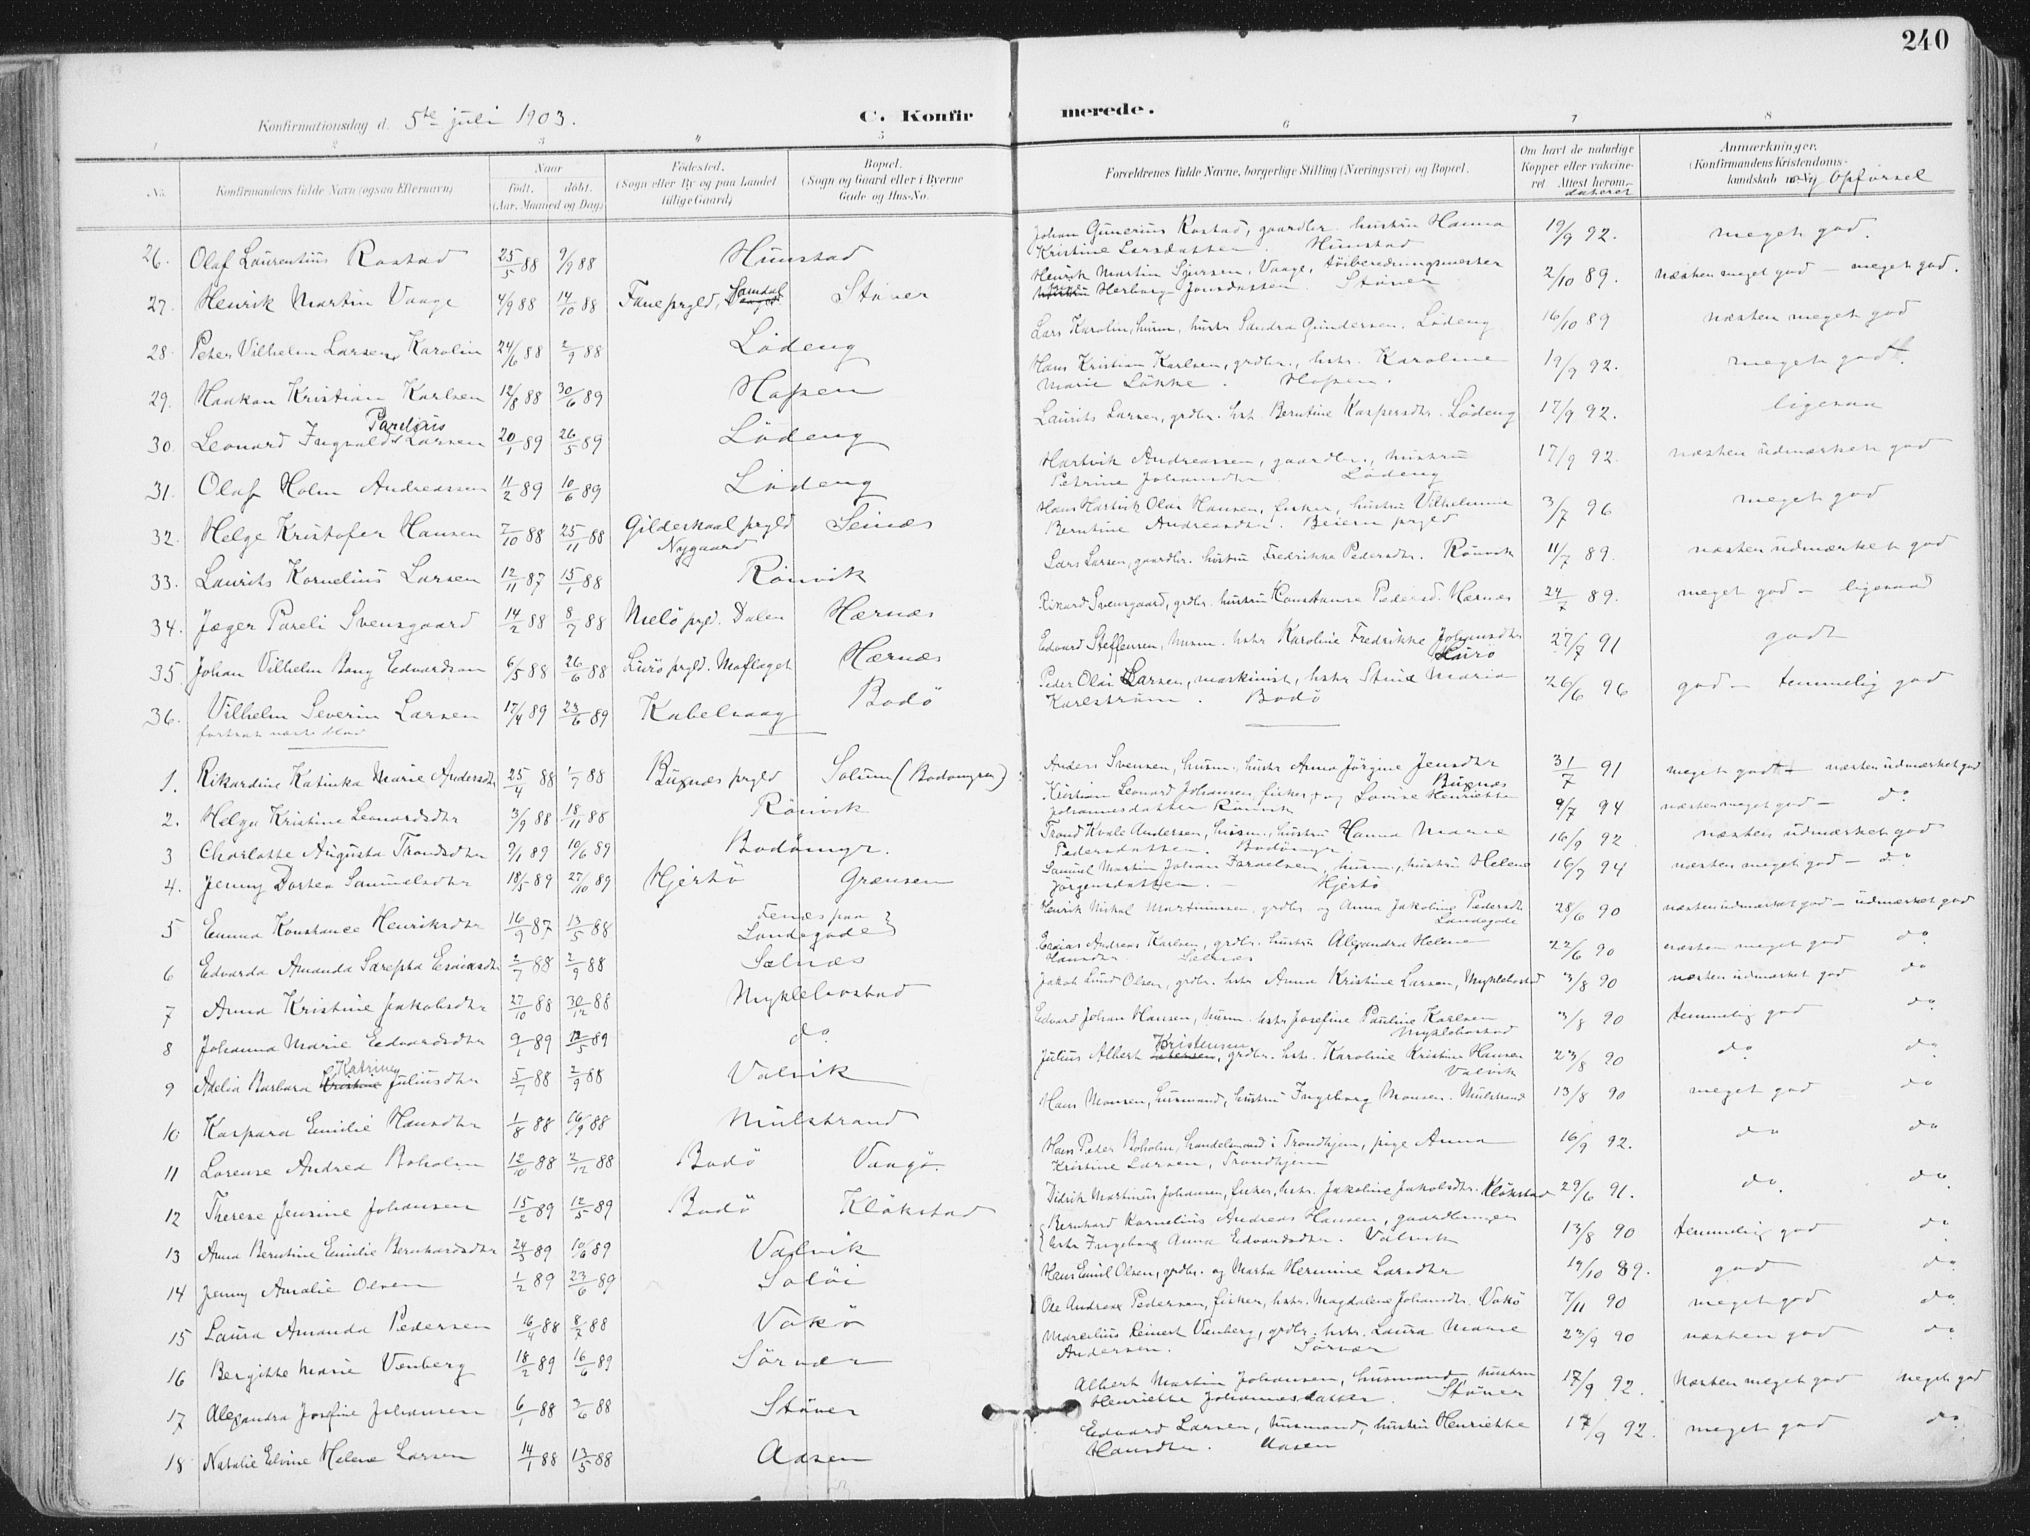 240
Konfirmationsdag d. 5te juli 1903.
C. Konfirmerede.
1 2 3 4 5 6 7 8
No. Konfirmandens fulde Navn (ogsaa Efternavn) Naar født, døbt. (Aar, Maaned og Dag) Fødested. (Sogn eller By og paa Landet tillige Gaard) Bopæl. (Sogn og Gaard eller i Byerne Gade og Hus-No. Forældrenes fulde Navne, borgerlige Stilling (Næringsvei) og Bopæl. Om havt de naturlige Kopper eller vakcineret Attest herom dateret Anmærkninger. (Konfirmandens Kristendomskundskab og Opførsel
26. Olaf Laurentius Rostad 25/5 88 9/9 88 Hunstad Johan Gunerius Rostad, gaardbr. hustru Hanna Kristine Larsdatter. Hunstad 19/9 92. meget god.
27. Henrik Martin Vaage 4/9 88 14/10 88 Fane prgld, Samdal Støver Henrik Martin Sjursen, Vaage, Herborg Jonsdatter. Støver 2/10 89. næsten meget god – meget god.
28. Peter Vilhelm Larsen, Karolin 24/6 88 2/9 88 Lødeng Lars Karolin, husm., hustr. Sandra Gundersen. Lødeng 16/10 89 næsten meget god
29. Haakon Kristian Karlsen 12/8 88 30/6 89 Hopen Hans Kristian Karlsen, grdbr., hstr. Karoline Marie Løkke. Hopen. 19/9 92. meget godt.
30. Leonard Ingvald Parelius Larsen 20/1 89 26/5 89 Lødeng Laurits Larsen, grdbr. hstr. Berntine Kaspersdtr. Lødeng 17/9 92. ligesaa
31. Olaf Holm Andreassen 11/2 89 10/6 89 Lødeng Hartvik Andreassen, gaardbr., hustru Petrine Johansdtr. Lødeng 17/9 92. næsten udmærket god
32. Helge Kristofer Hansen 7/10 88 25/11 88 Gildeskaal prgld Nygaard Seines Hans Hartvik Olai Hansen, fisker, hustru Vilhelmine Berntine Andreasdtr. Beiern prgld 3/7 96 meget god
33. Laurits Kornelius Larsen 12/11 87 15/1 88 Rønvik Lars Larsen, gaardbr. hustru Fredrikke Pedersdtr. Rønvik 11/7 89. næsten udmærket god
34. Jæger Pareli Svensgaard 14/2 88 8/7 88 Melø pgld. Dalen Hernæs Rikard Svensgaard, grdbr. hustru Konstanse Pedersd. Hernæs 24/7 89. meget god – ligesaa
35. Johan Vilhelm Bang Edvardsen 6/5 88 26/6 88 Lurø prgld. Moflaget Hernæs Edvard Steffensen, husm. hstr. Karoline Fredrikke Johansdtr. Lurø 27/7 91 godt
36. Vilhelm Severin Larsen 17/4 89 23/6 89 Kabelvaag Bodø Peder Olai Larsen, maskinist, hstr. Stina Maria Karlstrøm. Bodø 26/6 96 god – temmelig god
fortsat næste blad
1. Rikardine Katinka Marie Andersdtr 25/4 88 1/7 88 Buxnæs prgld Solum (Bodømyren) Anders Svensen, husm. hustr. Anna Jørgine Jensdtr. Buxnæs 31/7 91 meget godt – næsten udmærket god
2. Helga Kristine Leonardsdtr 3/9 88 18/11 88 Rønvik Kristian Leonard Johansen, fisker, og Lovise Henriette Johannesdatter Rønvik 9/7 94 næsten meget god – do
3 Charlotte Augusta Trondsdtr 9/1 89 10/6 89 Bodømyr. Trond Kvale Andersen, husm., hustru Hanna Marie Pedersdatter. Bodømyr. 16/9 92 næsten udmærket god
4. Jenny Dortea Samuelsdtr 18/5 89 27/10 89 Hjertø Grænsen Samuel Martin Johan Israelsen, husm., hustru Helene Jørgensdatter. – Hjertø 16/7 94 næsten meget god – do
5 Emma Konstance Henriksdtr 16/9 87 13/5 88 Fenæs paa Landegode} Henrik Nikal Martinussen, grdbr. og Anna Jakobine Pedersdtr Landegode 28/6 90 næsten udmærket god – udmærket god
6 Edvarda Amanda Sarepta Esaiasdtr 2/7 88 2/9 88 Sælnæs Esaias Andreas Karlsen, grdbr. hustru Alexandra Helene Hansdtr. Sælnæs 22/6 90 næsten meget god do
7 Anna Kristine Jakobsdtr 27/10 88 30/12 88 Myklebostad Jakob Lund Olsen, grdbr. hstr. Anna Kristine Larsen, Myklebostad 3/8 90 næsten udmærket god do
8 Johanna Marie Edvardsdtr 9/1 89 12/5 89 do Edvard Johan Hansen, husm. hstr. Josefine Pauline Karlsen Myklebostad 3/8 90 temmelig god do
9 Adelia Barbara Katrine Juliusdtr 5/7 88 2/9 88 Valvik Julius Albert Kristensen, grdbr. hstr. Karoline Kristine Hansen Valvik 23/8 90 do do
10 Kaspara Emilie Hansdtr 1/8 88 16/9 88 Mulstrand Hans Monsen, husmand, hustru Ingeborg Monsen. Mulstrand 13/8 90 meget god do
11 Lorense Andrea Boholm 12/10 88 2/12 88 Bodø Vaagø. Hans Peter Boholm, handelsmand i Trondhjem, pige Anna Kristine Larsen, Trondhjem 16/9 92. do do
12 Therese Jensine Johansen 15/2 89 12/5 89 Bodø Kløkstad Didrik Martinus Johansen, fisker, hstr. Jakoline Jakobsdtr. Kløkstad 29/6 91. do. do.
13 Anna Berntine Emilie Bernhardsdtr 24/3 89 10/6 89 Valvik Bernhard Kornelius Andreas Hansen, gaardbruger hstr. Ingeborg Anna Edvardsdtr. Valvik 13/8 90 temmelig god do
14 Jenny Amalie Olsen 1/2 89 23/6 89 Soløi Hans Emil Olsen, grdbr. og Marta Hermine Larsdtr 19/10 89. god do.
15 Laura Amanda Pedersen 16/4 88 8/7 88 Vokø Ole Andreas Pedersen, fisker, hstr. Magdalene Johansdtr. Vokø 7/11 90 meget god do.
16 Bergitte Marie Venberg 18/2 89 16/6 89 Sørvær Marcelius Reinert Venberg, grdbr. hstr. Laura Marie Andersen. Sørvær 23/9 90 næsten god do.
17 Alexandra Josefine Johansen 6/1 88 3/6 88 Støver Albert Martin Johansen, husmand, hustru Henriette Johannesdatter. Støver 17/9 92. Næsten meget god meget god
18 Natalie Elvine Helene Larsen 14/1 88 13/5 88 Aasen Edvard Larsen, husmand, hustru Henriette Hansdtr. Aasen 17/9 92. meget god do.